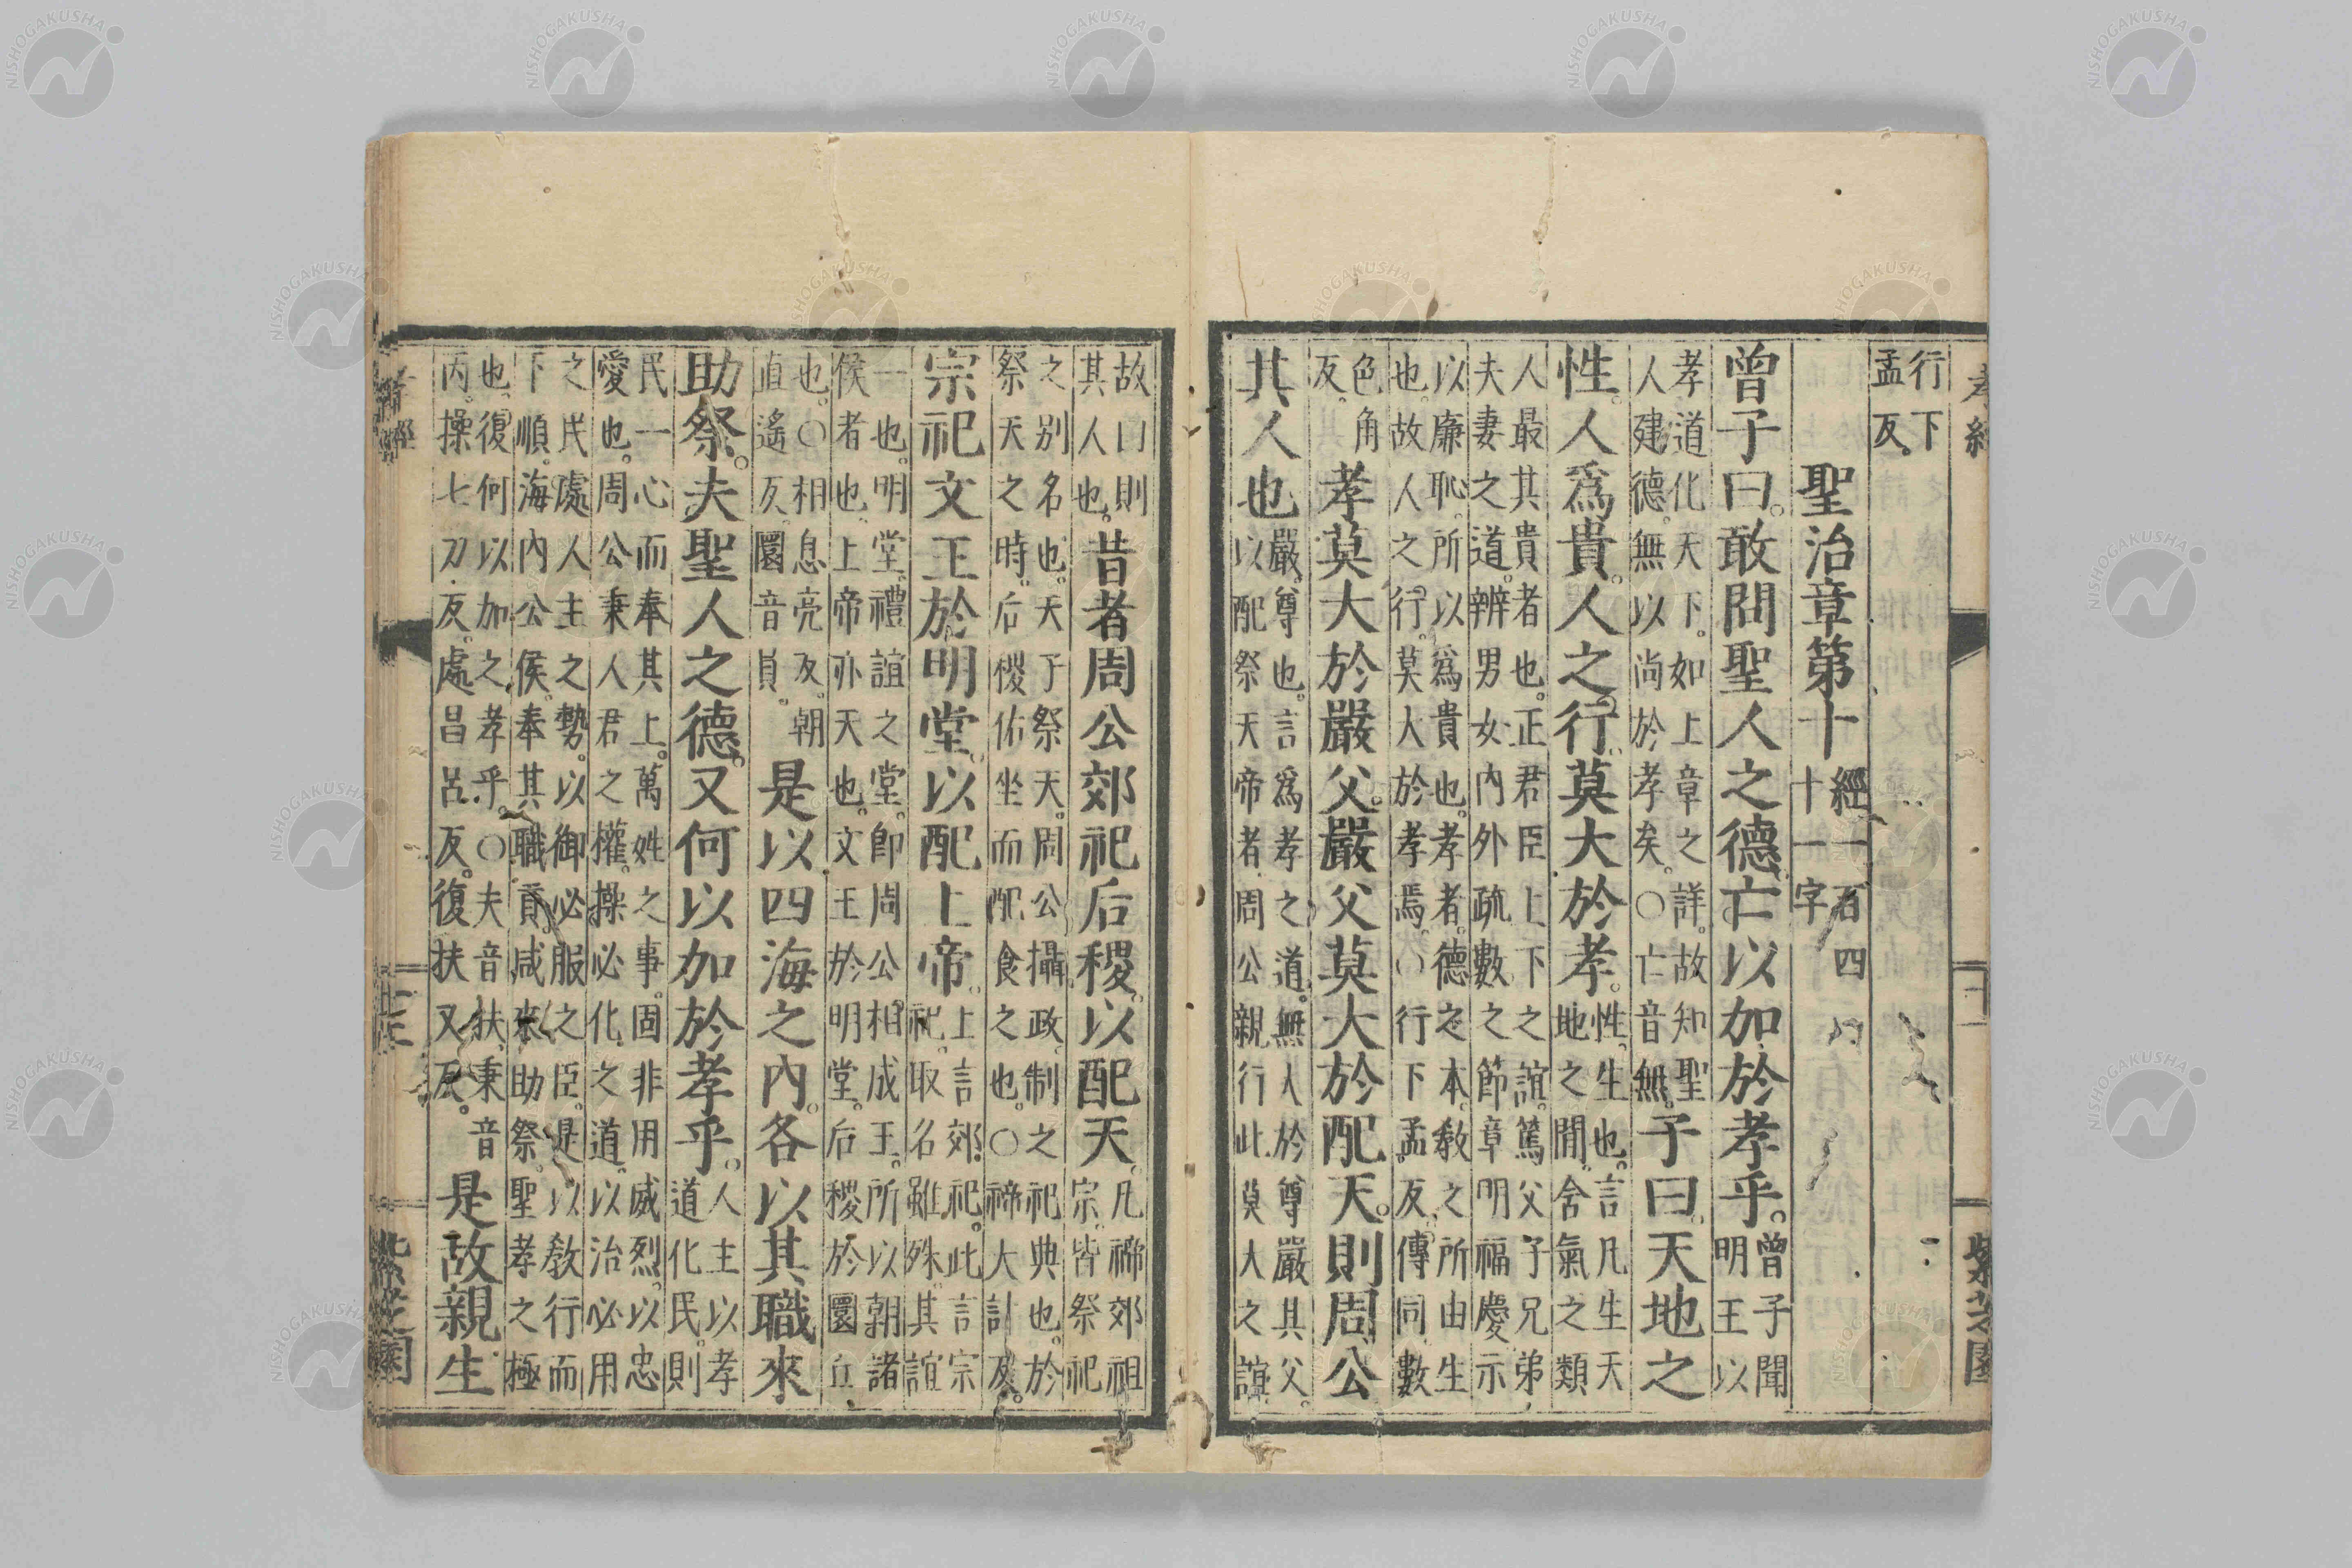 孝經 十一 紫芝園
行下孟反。
聖治章第十 經一百四十一字
曾子曰。敢問聖人之德。亡以加於孝乎。曾子聞明王以
孝道化天下。如上章之詳。故知聖人建德。無以尚於孝矣。○亡音無。子曰。天地之
性。人爲貴。人之行。莫大於孝。性。生也。言凡生天地之閒。含氣之類
人最其貴者也。正君臣上下之誼。篤父子兄弟夫妻之道。辨男女內外疏數之節。章明福慶。示
以廉恥。所以爲貴也。孝者。德之本。教之所由生也。故人之行。莫大於孝焉。○行下孟反。傳同。數
色角反。孝莫大於嚴父。嚴父莫大於配天。則周公
其人也。嚴。尊也。言爲孝之道。無人於尊嚴其父。以配祭天帝者。周公親行此莫大之誼。
故曰則其人也。昔者周公郊祀后稷。以配天。凡禘郊祖宗。皆祭祀
之別名也。天子祭天。周公攝政。制之祀典也。於祭天之時。后稷佑坐而配食之也。○禘大計反。
宗祀文王於明堂。以配上帝。上言郊祀。此言宗祀。取名雖殊。其誼
一也。明堂。禮誼之堂。卽周公相成王。所以朝諸侯者也。上帝亦天也。文王於明堂。后稷於圜丘
也。○相息亮反。朝直遙反。圜音員。是以四海之內。各以其職來
助祭。夫聖人之德。又何以加於孝乎。人主以孝道化民。則
民一心而奉其上。萬姓之事。固非用威烈。以忠愛也。周公秉人君之權。操必化之道。以治必用
之民。處人主之勢。以御必服之臣。是以教行而下順。海內公侯。奉其職貢。咸來助祭。聖孝之極
也。復何以加之孝乎。○夫音扶。秉音丙。操七刀反。處昌呂反。復扶又反。是故親生
孝經 紫芝園
NISHOGAKUSHA